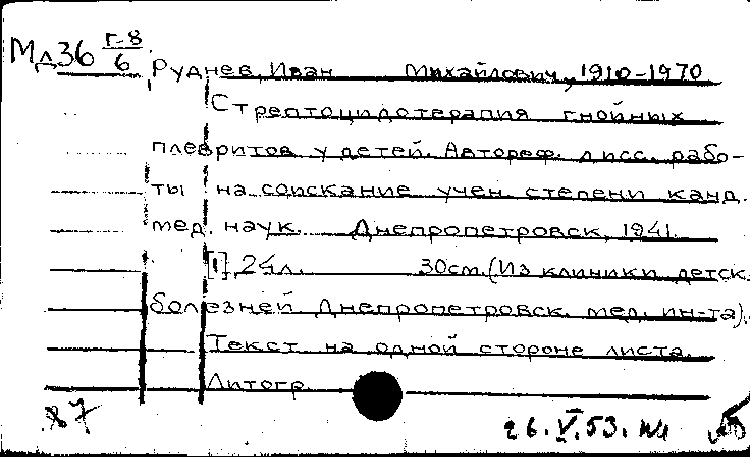 Мд36 Г-8/6
Руднев, Иван Михайлович, 1910-1970
Стрептоцидотерапия гнойных
плевритов у детей. Автореф. дисс. рабо-
ты на соискание учен. степени канд.
мед. наук. Днепропетровск, 1941.
[1], 24л. 30см. (Из клиники детск.
болезней Днепропетровск. мед. ин-та).
Текст на одной стороне листа.
Литогр.
87
26.V.53.